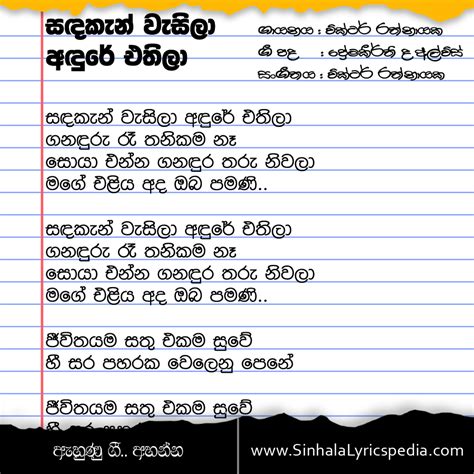 සඳකැන් වැසිලා
අඳුරේ එතිලා
ගායනය : වික්ටර් රත්නායක
ගී පද : ප්‍රේමකීර්ති ද අල්විස්
සංගීතය : වික්ටර් රත්නායක
සඳකැන් වැසිලා අඳුරේ එතිලා
ගනඳුරු රෑ තනිකම නෑ
සොයා එන්න ගනඳුර තරු නිවලා
මගේ එළිය අද ඔබ පමණි..
සඳකැන් වැසිලා අඳුරේ එතිලා
ගනඳුරු රෑ තනිකම නෑ
සොයා එන්න ගනඳුර තරු නිවලා
මගේ එළිය අද ඔබ පමණි..
ජීවිතයම සතු එකම සුවේ
හී සර පහරක වෙලෙනු පෙනේ
ජීවිතයම සතු එකම සුවේ
ඇහුණු ගී.. අහන්න
www.SinhalaLyricspedia.com